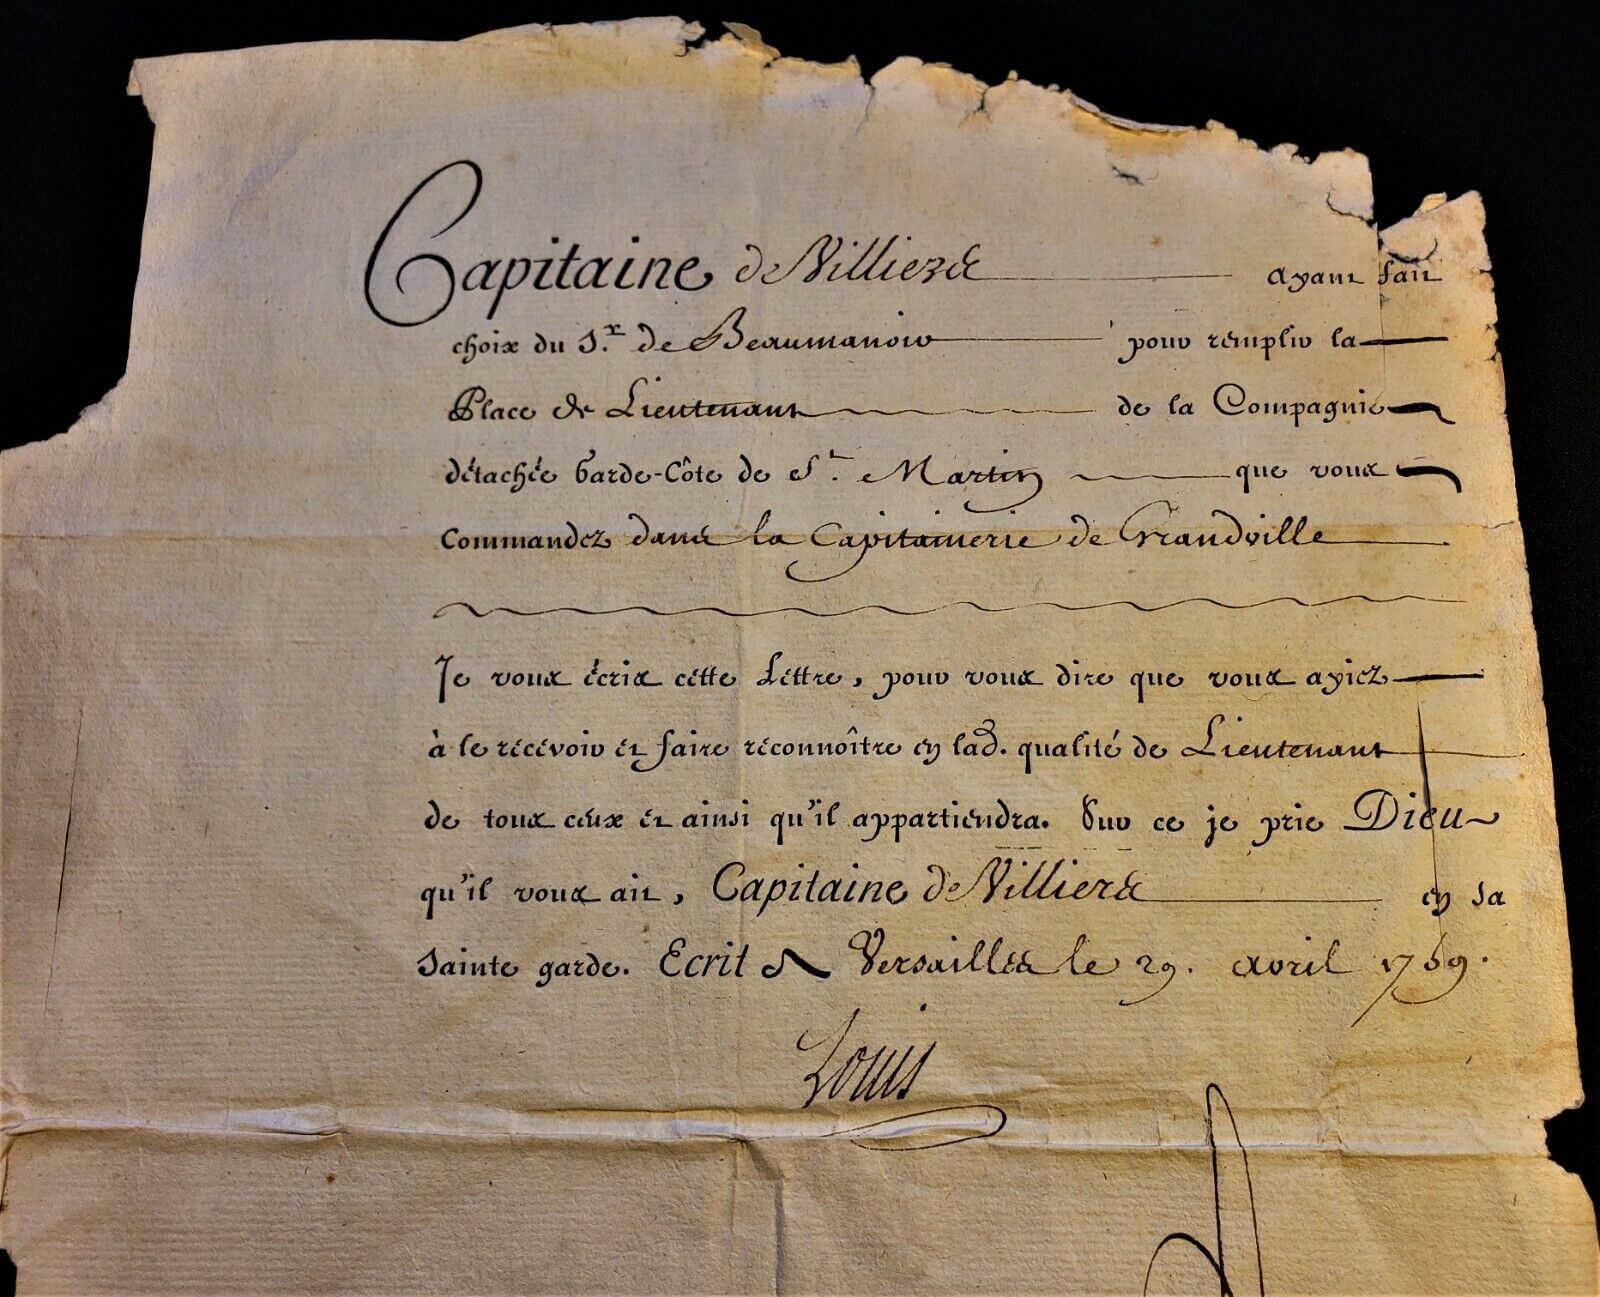 Capitaine de Villiers ayant fait
choix du S.r de Beaumanoir pour remplir la
Place de Lieutenant de la Compagnie
détachée Garde-Côte de S.t Martin que vous
Commandez dans la Capitainerie de Grandville
Je vous écris cette Lettre, pour vous dire que vous ayiez
à le recevoir et faire reconnoître en lad. qualité de Lieutenant
de tous ceux et ainsi qu'il appartiendra. Sur ce je prie Dieu
qu'il vous ait, Capitaine de Villiers en sa
Sainte garde. Ecrit à Versailles le 29. avril 1769.
Louis